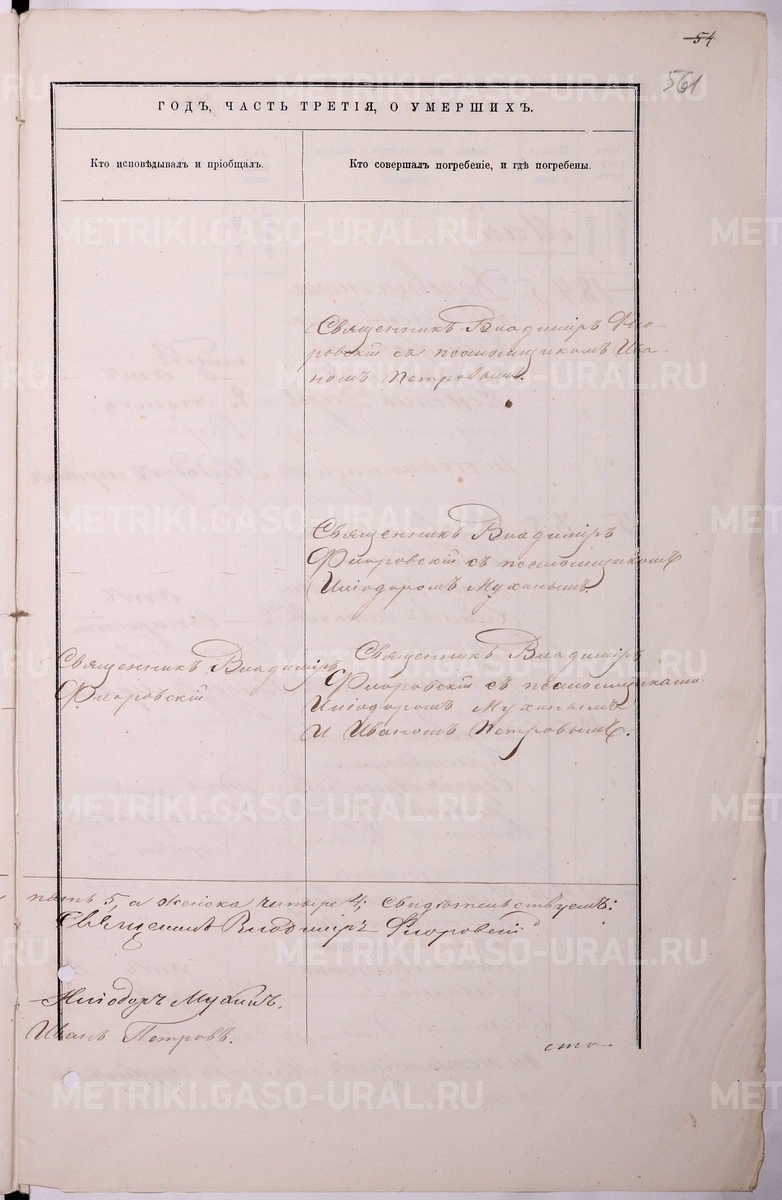 54
561
ГОДЪ, ЧАСТЬ ТРЕТІЯ, О УМЕРШИХЪ.
Кто исповѣдывалъ и пріобщалъ.
Кто совершалъ погребеніе, и гдѣ погребены.
Священникъ Владиміръ Фло-
ровскій съ псаломщикомъ Ива-
номъ Петровымъ.
Священникъ Владиміръ
Флоровскій съ псаломщикомъ
Иліодоромъ Мухинымъ.
Священникъ Владиміръ
Флоровскій
Священникъ Владиміръ
Флоровскій съ псаломщиками
Иліодоромъ Мухинымъ
и Иваномъ Петровымъ.
пять 5, а женска четыре 4; свидѣтельствуемъ:
Священникъ Владиміръ Флоровскій
Иліодоръ Мухинъ.
Иванъ Петровъ.
METRIKI.GASO-URAL.RU